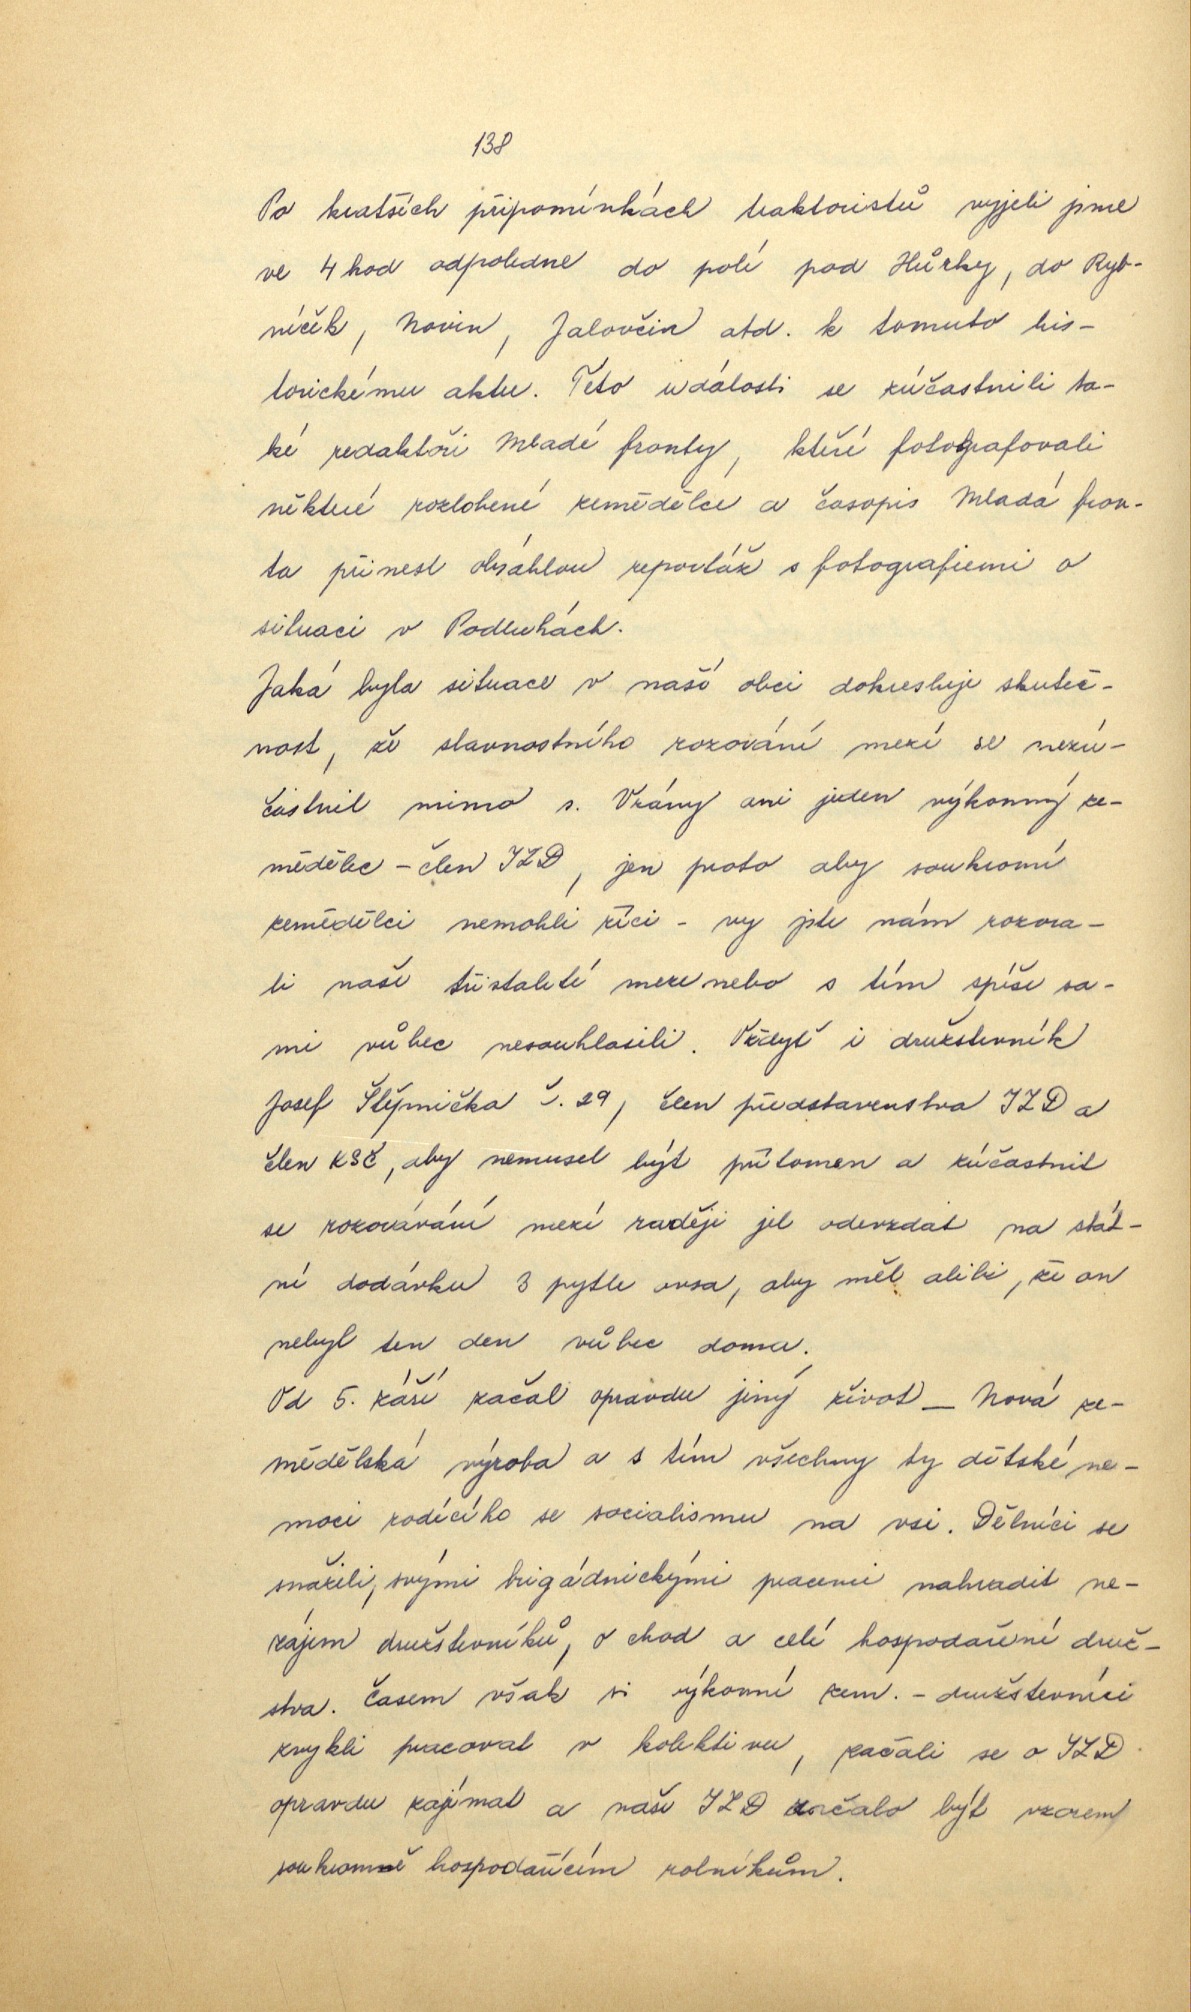 138
Po kratších připomínkách traktoristů vyjeli jsme
ve 4 hod odpoledne do polí pod Hůrky, do Ryb-
níčěk, Novin, Jalovčin atd. k tomuto his-
torickému aktu. Této události se zúčastnili ta-
ké redaktoři Mladé fronty, kteří fotografovali
některé rozlobené zemědělce a časopis Mladá fron-
ta přinesl obsáhlou reportáž s fotografiemi o
situaci v Podluhách.
Jaká byla situace v naší obci dokresluje skuteč-
nost, že slavnostního rozorání mezí se nezú-
častnil mimo s. Vrány ani jeden výkonný ze-
mědělec - člen JZD, jen proto aby soukromí
zemědělci nemohli říci - vy jste nám rozora-
li naše třistaleté meze nebo s tím spíše sa-
mi vůbec nesouhlasili. Vždyť i družstevník
Josef Štěpnička č. 29, člen představenstva JZD a
člen KSČ, aby nemusel být přítomen a zúčastnit
se rozorávání mezí raději jel odevzdat na stát-
ní dodávku 3 pytle ovsa, aby měl alibi, že on
nebyl ten den vůbec doma.
Od 5. září začal opravdu jiný život - Nová ze-
mědělská výroba a s tím všechny ty dětské ne-
moci rodícího se socialismu na vsi. Dělníci se
snažili, svými brigádnickými pracemi nahradit ne-
zájem družstevníků, o chod a celé hospodaření druž-
stva. Časem však si výkonní zem. - družstevníci
zvykli pracovat v kolektivu, začali se o JZD
opravdu zajímat a naše JZD začalo být vzorem
soukromě hospodařícím rolníkům.